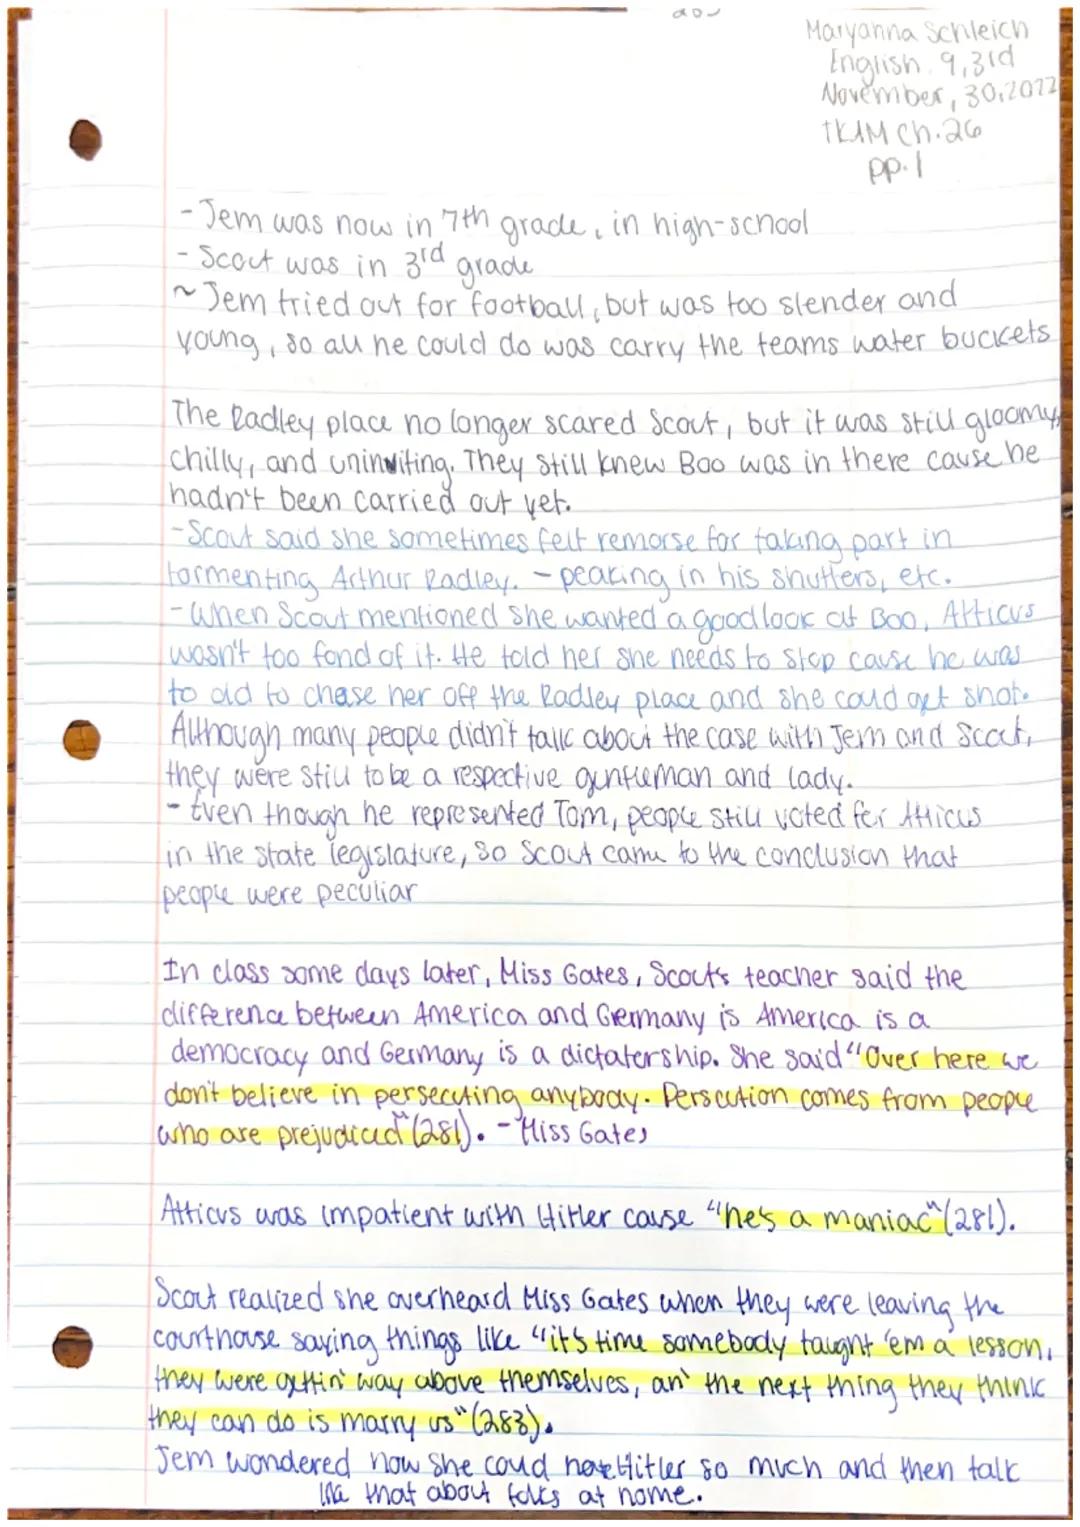 Maryanna Schleich
English 9, 3rd
November, 30, 2022
TKAM Ch. 26
pp. 1
- Jem was now in 7th grade, in high-school
- Scout was in 3rd grade
~ Jem tried out for football, but was too slender and
young, so all he could do was carry the teams water buckets
The Radley place no longer scared Scout, but it was still gloomy,
chilly, and uninviting. They still knew Boo was in there cause he
hadn't been carried out yet.
- Scout said she sometimes felt remorse for taking part in
tormenting Arthur Radley. - peaking in his shutters, etc.
- When Scout mentioned she wanted a good look at Boo, Atticus
wasn't too fond of it. He told her she needs to stop cause he was
to old to chase her off the Radley place and she could get shot.
Although many people didn't talk about the case with Jem and Scout,
they were still to be a respective gentleman and lady.
- Even though he represented Tom, people still voted for Atticus
in the state legislature, so Scout came to the conclusion that
people were peculiar
In class some days later, Miss Gates, Scout's teacher said the
difference between America and Germany is America is a
democracy and Germany is a dictatership. She said "Over here we
don't believe in persecuting anybody. Perscution comes from people
who are prejudiced" (281). - Miss Gates
Atticus was impatient with Hitler cause "he's a maniac" (281).
Scout realized she overheard Miss Gates when they were leaving the
courthouse saying things like "it's time somebody taught 'em a lesson,
they were gettin' way above themselves, an' the next thing they think
they can do is marry us" (283).
Jem wondered how she could hate Hitler so much and then talk
like that about folks at home.